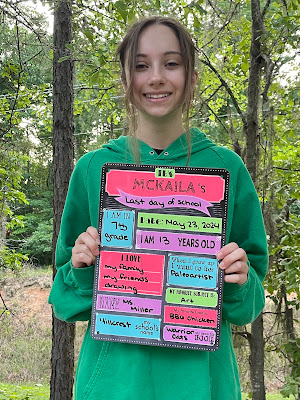 IT'S
MCKAILA's
Last day of school
I AM IN
7th
grade
DATE: May 23, 2024
I AM 13 YEARS OLD
I LOVE
my family
my friends
drawing
When I grow up
I want to be
Paleoartist
MY FAVORITE SUBJECT IS
Art
BBQ Chicken
Ms
Miller
Hillcrest
my
school's
name
warrior
cats